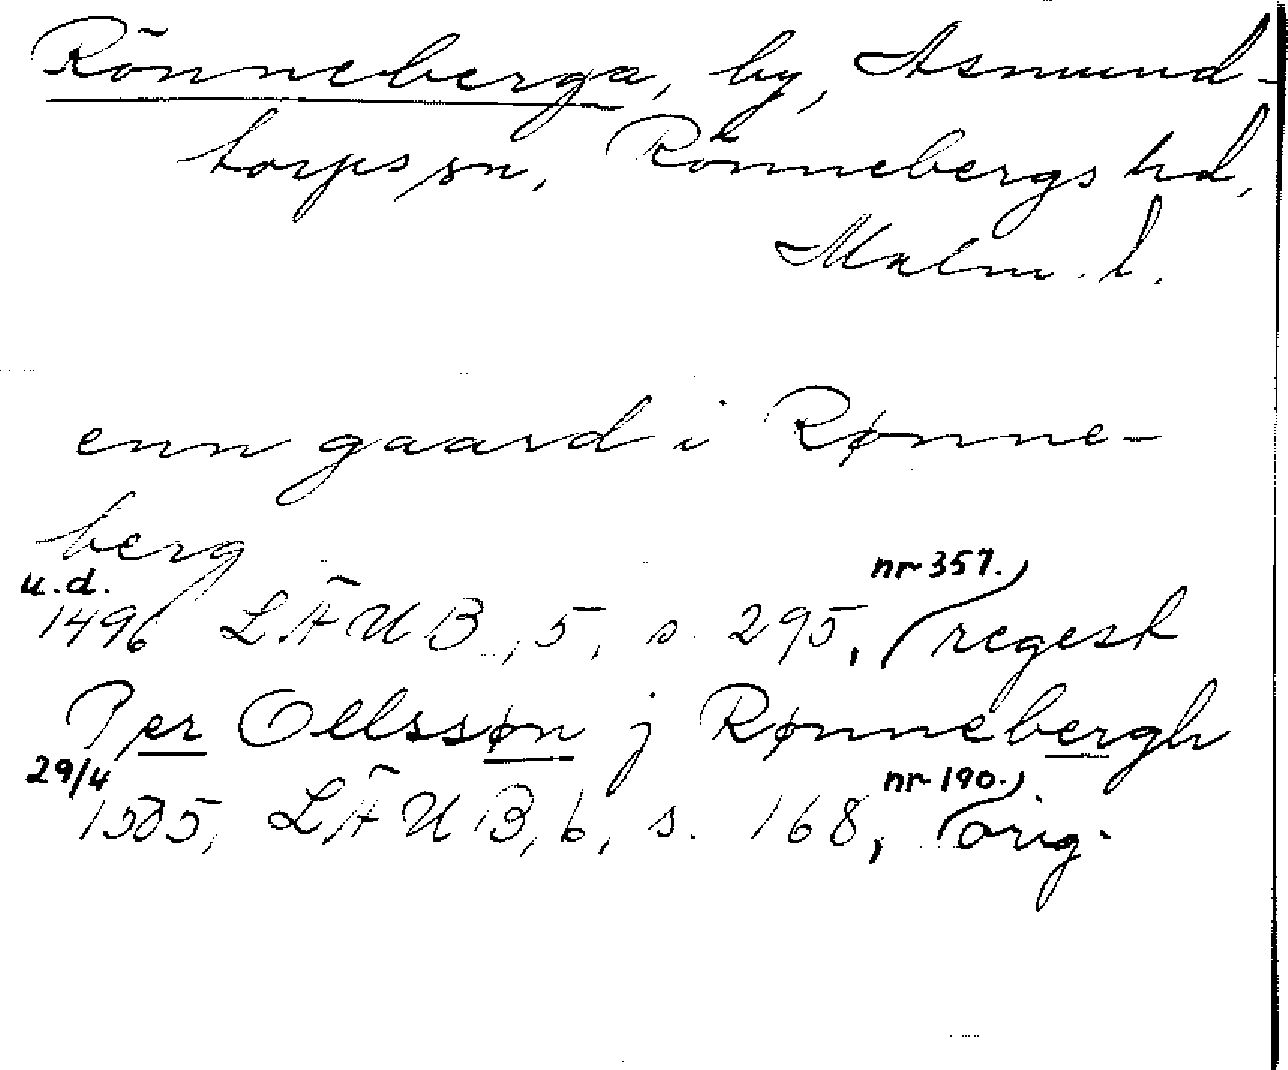 Rönneberga, by, Asmund-
torps sn, Rönnebergs hd,
Malm. l.
enn gaard i Rønne-
berg
nr 357.
u.d.
1496 LÄUB, 5, s. 295, regest
Per Ollssøn j Rønnebergh
29/4 nr 190.
1505, LÄUB, 6, s. 168, orig.